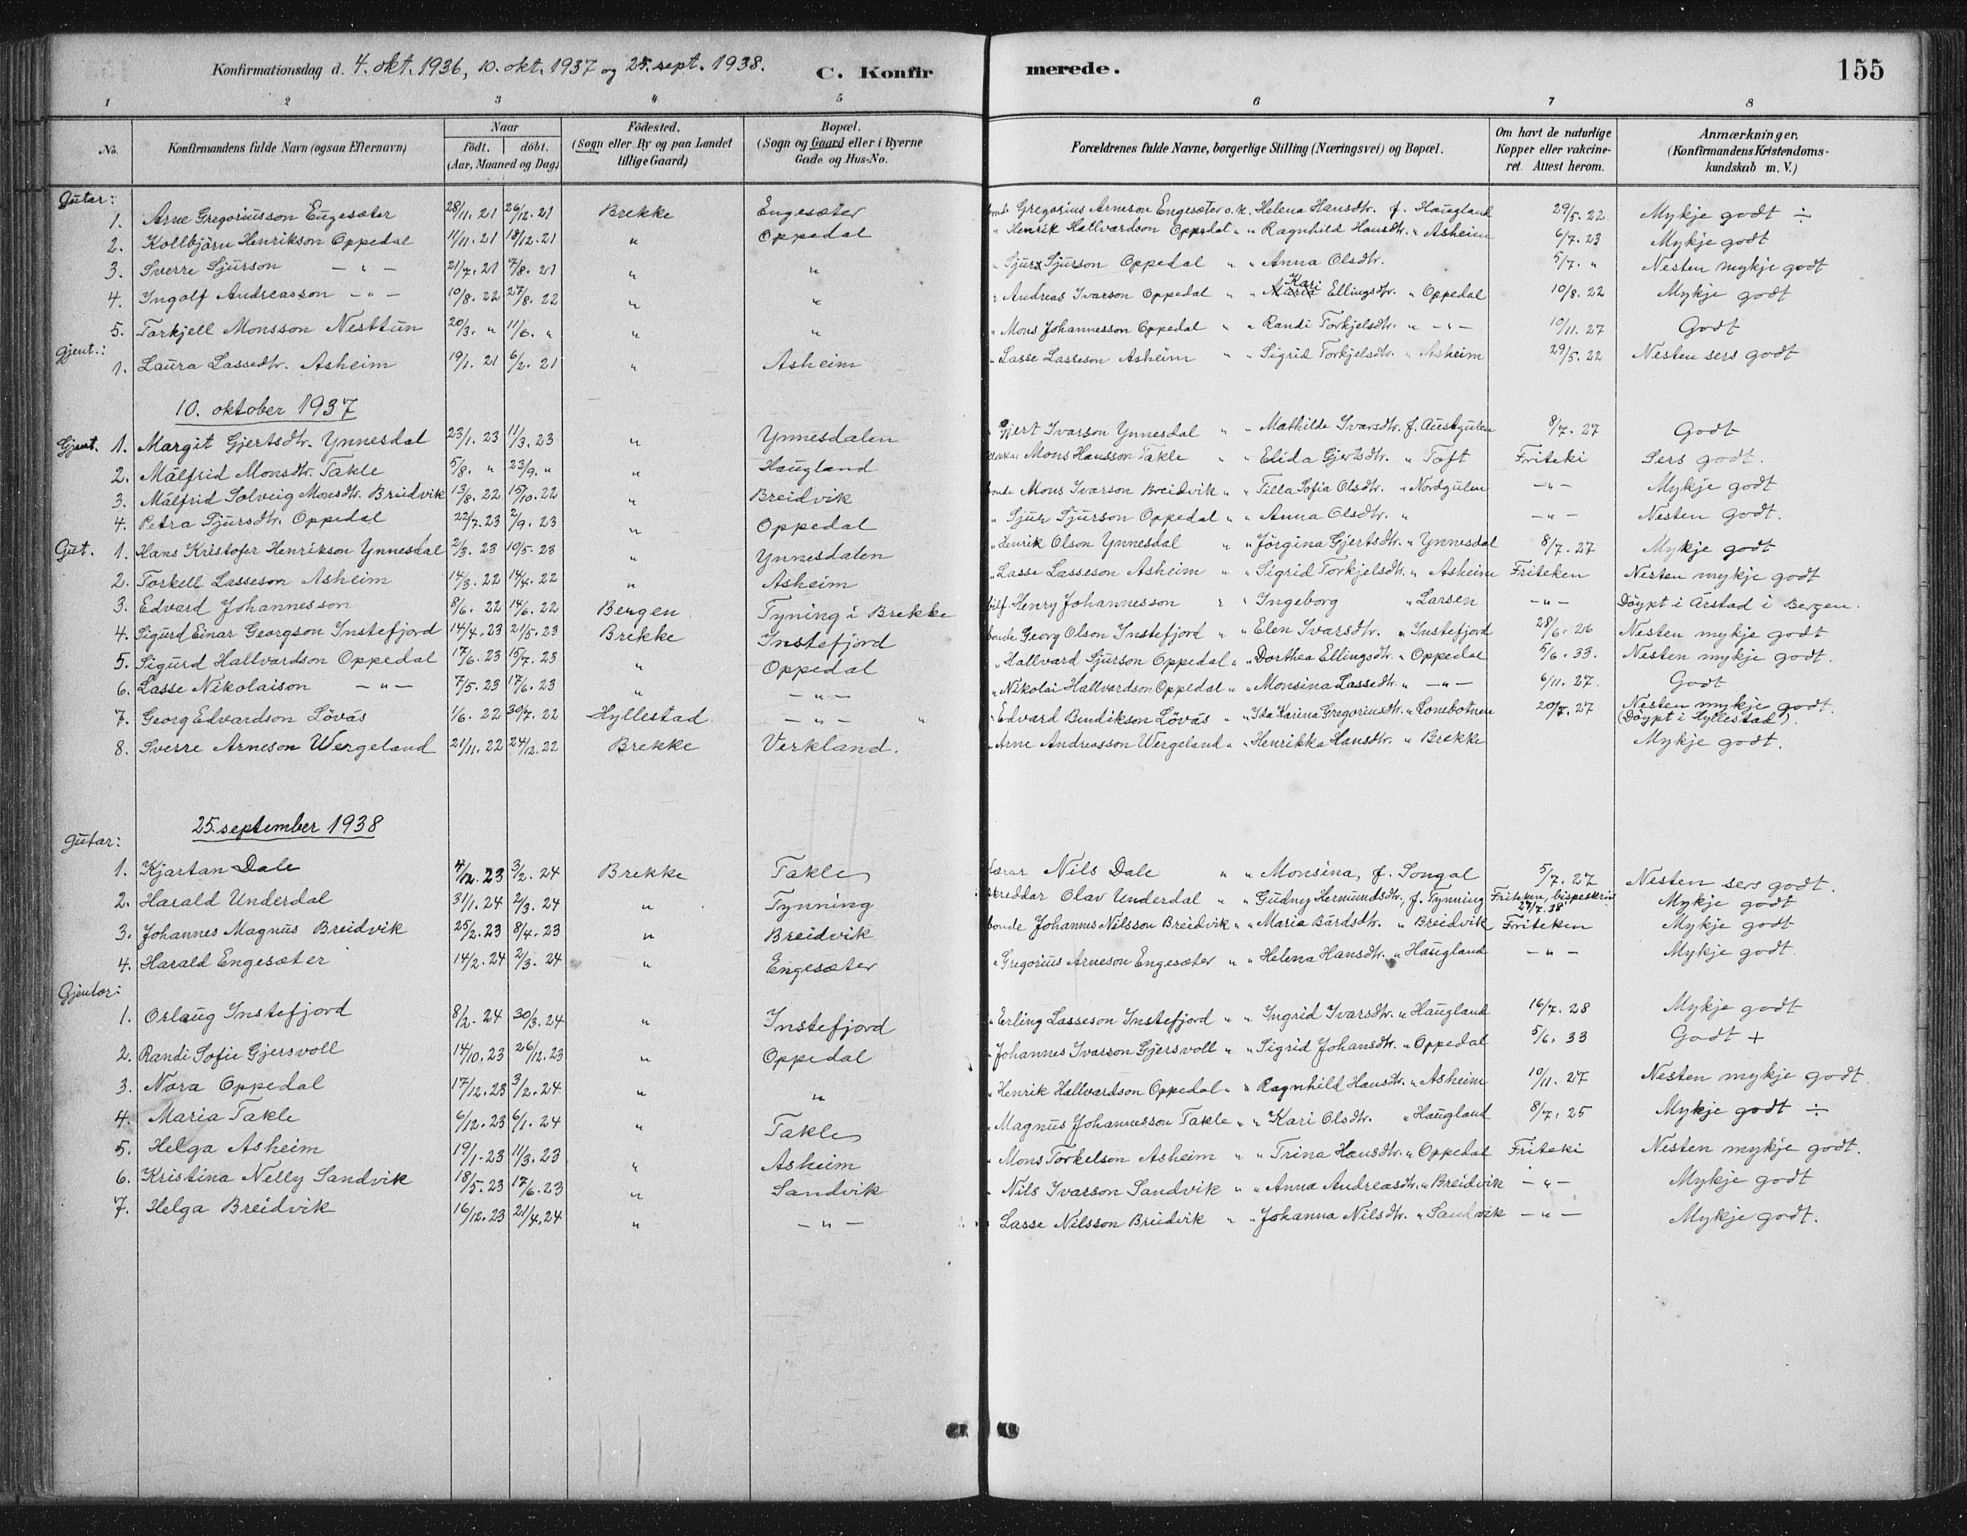 Konfirmationsdag d. 4. okt. 1936, 10. okt. 1937 og 25. sept. 1938. C. Konfirmerede. 155
1 2 3 4 5 6 7 8
No. Konfirmandens fulde Navn (ogsaa Efternavn) Naar født. døbt. (Aar, Maaned og Dag) Fødested. (Sogn eller By og paa Landet tillige Gaard) Bopæl. (Sogn og Gaard eller i Byerne Gade og Hus-No. Forældrenes fulde Navne, borgerlige Stilling (Næringsvei) og Bopæl. Om havt de naturlige Kopper eller vakcineret. Attest herom. Anmærkninger. (Konfirmandens Kristendomskundskab m. V.)
Gutar:
1. Arne Gregoriusson Engesæter 28/11. 21 26/12. 21 Brekke Engesæter bonde Gregorius Arneson Engesæter o. k. Helena Hansdtr. f. Haugland 29/5. 22 Mykje godt ÷
2. Kollbjörn Henrikson Oppedal 11/11. 21 18/12. 21 " Oppedal " Henrik Hallvardson Oppedal " " Ragnhild Hansdtr. " Asheim 6/7. 23 Mykje godt
3. Sverre Sjurson — " — 21/7. 21 7/8. 21 " " " Sjur Sjurson Oppedal " " Anna Olsdtr. 5/7. " Nesten mykje godt
4. Ingolf Andreasson — " — 10/8. 22 27/8. 22 " " " Andreas Ivarson Oppedal " " Kari Ellingsdtr. " Oppedal 10/8. 22 Mykje godt
5. Torkjell Monsson Nesttun 20/3. " 11/6. " " " " Mons Johannesson Oppedal " " Randi Torkjelsdtr. " — " — 10/11. 27 Godt
Gjent.:
1. Laura Lassedtr. Asheim 19/1. 21 6/2. 21 " Asheim " Lasse Lasseson Asheim " " Sigrid Torkjelsdtr. " Asheim 29/5. 22 Nesten sers godt
10. oktober 1937
Gjent. 1. Margit Gjertsdtr. Ynnesdal 23/1. 23 11/3. 23 " Ynnesdalen " Gjert Ivarson Ynnesdal " " Mathilde Ivarsdtr. f. Austgulen 8/7. 27 Godt
2. Målfrid Monsdtr. Takle 5/8. " 23/9. " " Haugland Mons Hansson Takle " " Elida Gjertsdtr. " Toft Friteki Sers godt.
3. Målfrid Solveig Monsdtr. Breidvik 13/8. 22 15/10. 22 " Breidvik bonde Mons Ivarson Breidvik " " Tilla Sofia Olsdtr. " Nordgulen — " — Mykje godt
4. Petra Sjursdtr. Oppedal 22/7. 23 2/9. 23 " Oppedal " Sjur Sjurson Oppedal " " Anna Olsdtr. " — " — Nesten godt.
Gut. 1. Hans Kristofer Henrikson Ynnesdal 2/3. 23 10/5. 23 " Ynnesdalen " Henrik Olson Ynnesdal " " Jörgina Gjertsdtr. " Ynnesdal 8/7. 27 Mykje godt
2. Torkell Lasseson Asheim 14/3. 22 14/4. 22 " Asheim " Lasse Lasseson Asheim " " Sigrid Torkjelsdtr. " Asheim Friteken Nesten mykje godt
3. Edvard Johannesson 8/6. 22 14/6. 22 Bergen Tyning i Brekke Henry Johannesson " " Ingeborg " Larsen — " — Döypt i Årstad i Bergen.
4. Sigurd Einar Georgson Instefjord 14/4. 23 21/5. 23 Brekke Instefjord bonde Georg Olson Instefjord " " Elen Ivarsdtr. " Instefjord 28/6. 26 Nesten mykje godt
5. Sigurd Hallvardson Oppedal 17/6. 23 15/7. 23 " Oppedal " Hallvard Sjurson Oppedal " " Dorthea Ellingsdtr. " Oppedal 5/6. 33. Nesten mykje godt.
6. Lasse Nikolaison — " — 7/5. 23 17/6. 23 " — " — " Nikolai Hallvardson Oppedal " " Monsina Lassedtr. " — " — 6/11. 27. Godt
7. Georg Edvardson Lövås 1/6. 22 30/7. 22 Hyllestad — " — " " Edvard Bendikson Lövås " " Ida Karina Gregoriusdtr. " Lonebotnen 20/7. 27 Nesten mykje godt. (Döypt i Hyllestad).
8. Sverre Arneson Wergeland 21/11. 22 24/12. 22 Brekke Verkland. " Arne Andreasson Wergeland " " Henrikka Hansdtr. " Brekke Mykje godt.
25. september 1938
Gutar:
1. Kjartan Dale 4/12. 23 3/2. 24 Brekke Takle Nils Dale " " Monsina, f. Songal 5/7. 27 Nesten sers godt.
2. Harald Underdal 31/1. 24 2/3. 24 " Tynning skreddar Olav Underdal " " Gudny Hermundsdtr., f. Tynning Friteken, bispeskriv 27/7. 38 Mykje godt
3. Johannes Magnus Breidvik 25/2. 23 8/4. 23 " Breidvik bonde Johannes Nilsson Breidvik " " Maria Bårdsdtr. " Breidvik Friteken Mykje godt
4. Harald Engesæter 14/2. 24 2/3. 24 " Engesæter " Gregorius Arneson Engesæter " " Helena Hansdtr. " Haugland — " — Mykje godt.
Gjentor:
1. Orlaug Instefjord 8/2. 24 30/3. 24 " Instefjord " Erling Lasseson Instefjord " " Ingrid Ivarsdtr. " Haugland 16/7. 28 Mykje godt
2. Randi Sofie Gjersvoll 14/10. 23 26/12. 23 " Oppedal " Johannes Ivarson Gjersvoll " " Sigrid Johansdtr. " Oppedal 5/6. 33 Godt +
3. Nora Oppedal 17/12. 23 3/2. 24 " " " Henrik Hallvardson Oppedal " " Ragnhild Hansdtr. " Asheim 10/11. 27 Nesten mykje godt
4. Maria Takle 6/12. 23 6/1. 24 " Takle " Magnus Johannesson Takle " " Kari Olsdtr. " Haugland 8/7. 25 Mykje godt ÷
5. Helga Asheim 19/1. 23 11/3. 23 " Asheim " Mons Torkelson Asheim " " Trina Hansdtr. " Oppedal Friteki Nesten mykje godt.
6. Kristina Nelly Sandvik 18/5. 23 17/6. 23 " Sandvik " Nils Ivarson Sandvik " " Anna Andreasdtr. " Breidvik — " — Mykje godt
7. Helga Breidvik 16/12. 23 21/4. 24 " — " — " Lasse Nilsson Breidvik " " Johanna Nilsdtr. " Sandvik — " — Mykje godt.